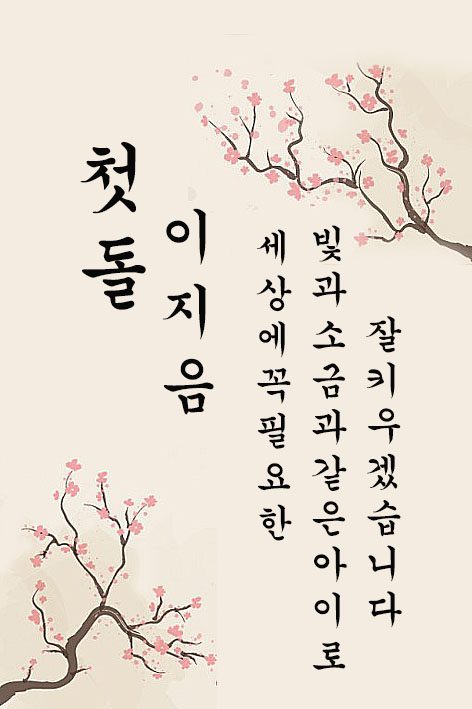 첫돌
이지음
세상에꼭필요한
빛과소금과같은아이로
잘키우겠습니다